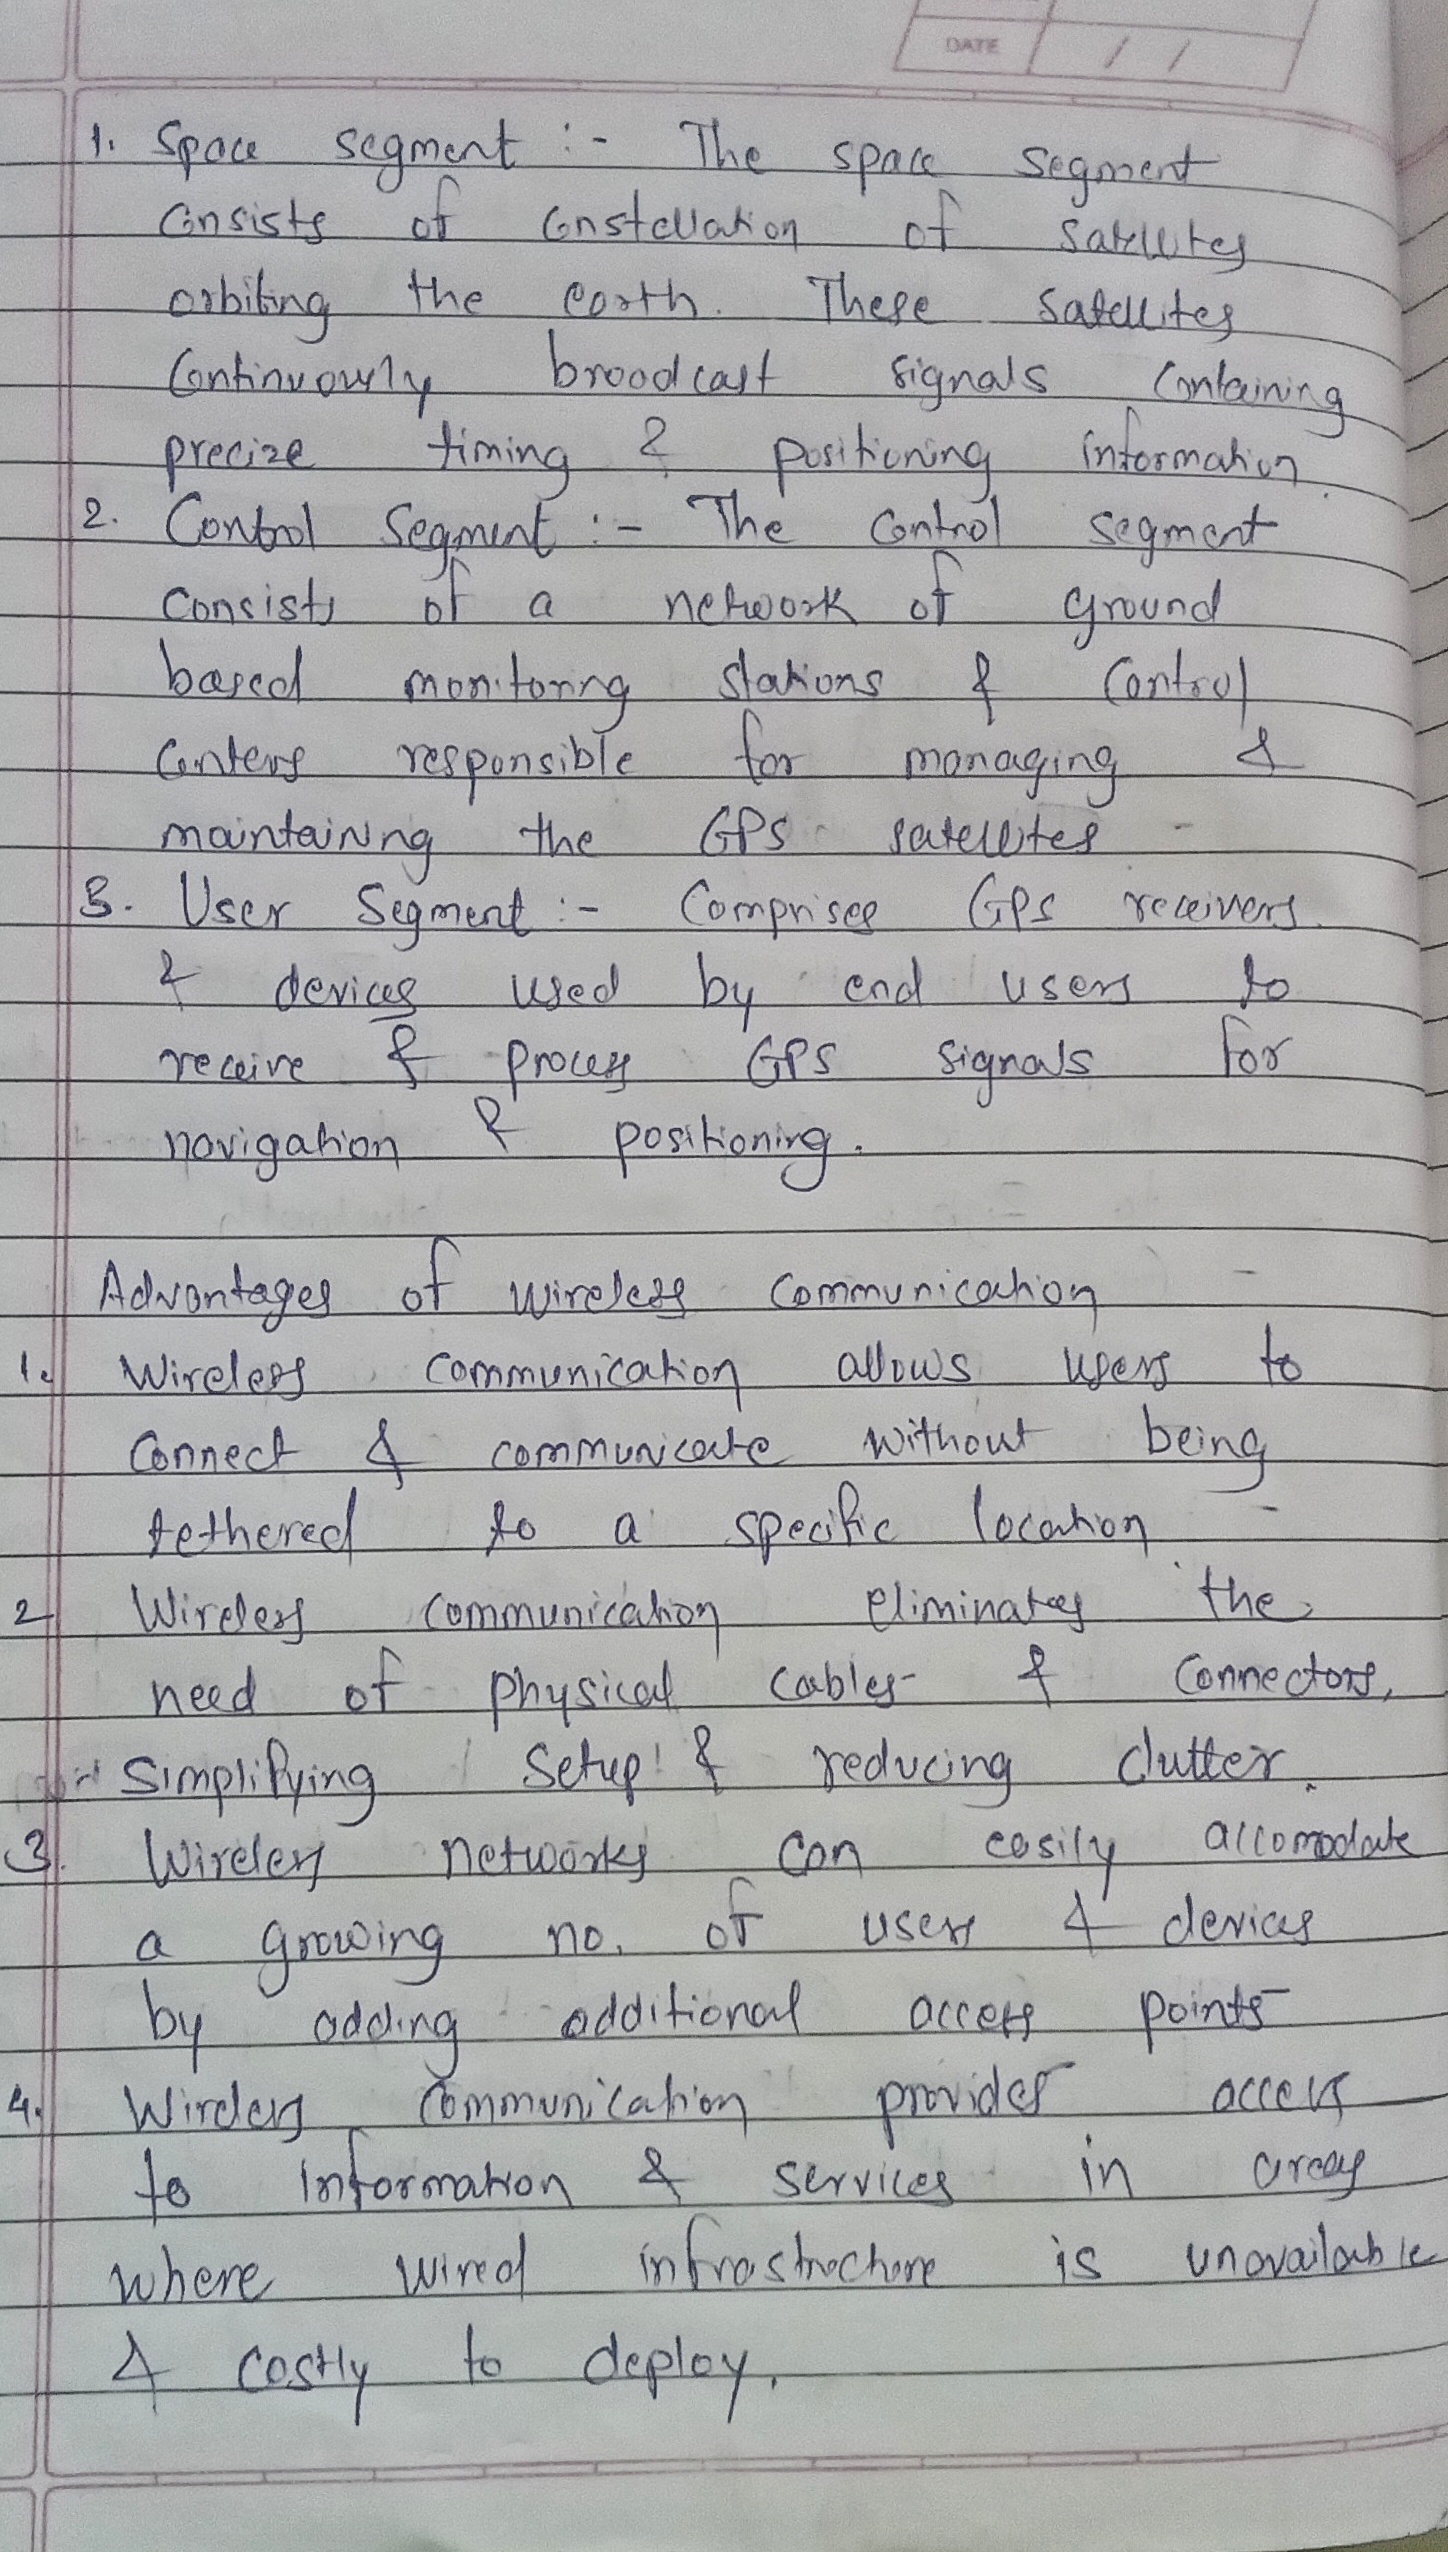 DATE / /
1. Space segment :- The space segment
consists of constellation of satellites
orbiting the earth. These satellites
continuously broadcast signals containing
precize timing & positioning information.
2. Control Segment :- The control segment
consists of a network of ground
based monitoring stations & control
centers responsible for managing &
maintaining the GPS satellites
3. User Segment :- Comprises GPS receivers
& devices used by end users to
receive & process GPS signals for
navigation & positioning.
Advantages of wireless communication
1. Wireless communication allows users to
connect & communicate without being
tethered to a specific location
2 Wireless communication eliminates the
need of physical cables & connectors,
simplifying setup & reducing clutter.
3. Wireless networks can easily accomodate
a growing no. of users & devices
by adding additional access points
4. Wireless communication provides access
to information & services in areas
where wired infrastructure is unavailable
& costly to deploy.